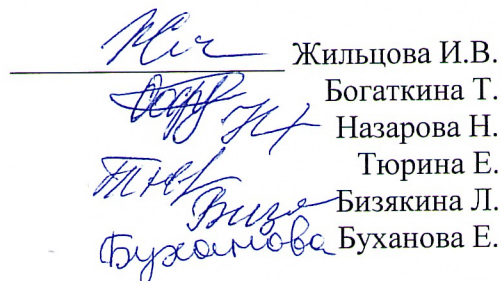 Жильцова И.В.
Богаткина Т.
Назарова Н.
Тюрина Е.
Бизякина Л.
Буханова Буханова Е.